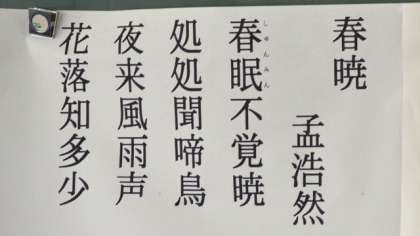 春暁
孟浩然
春眠不覚暁
しゅんみん
処処聞啼鳥
夜来風雨声
花落知多少